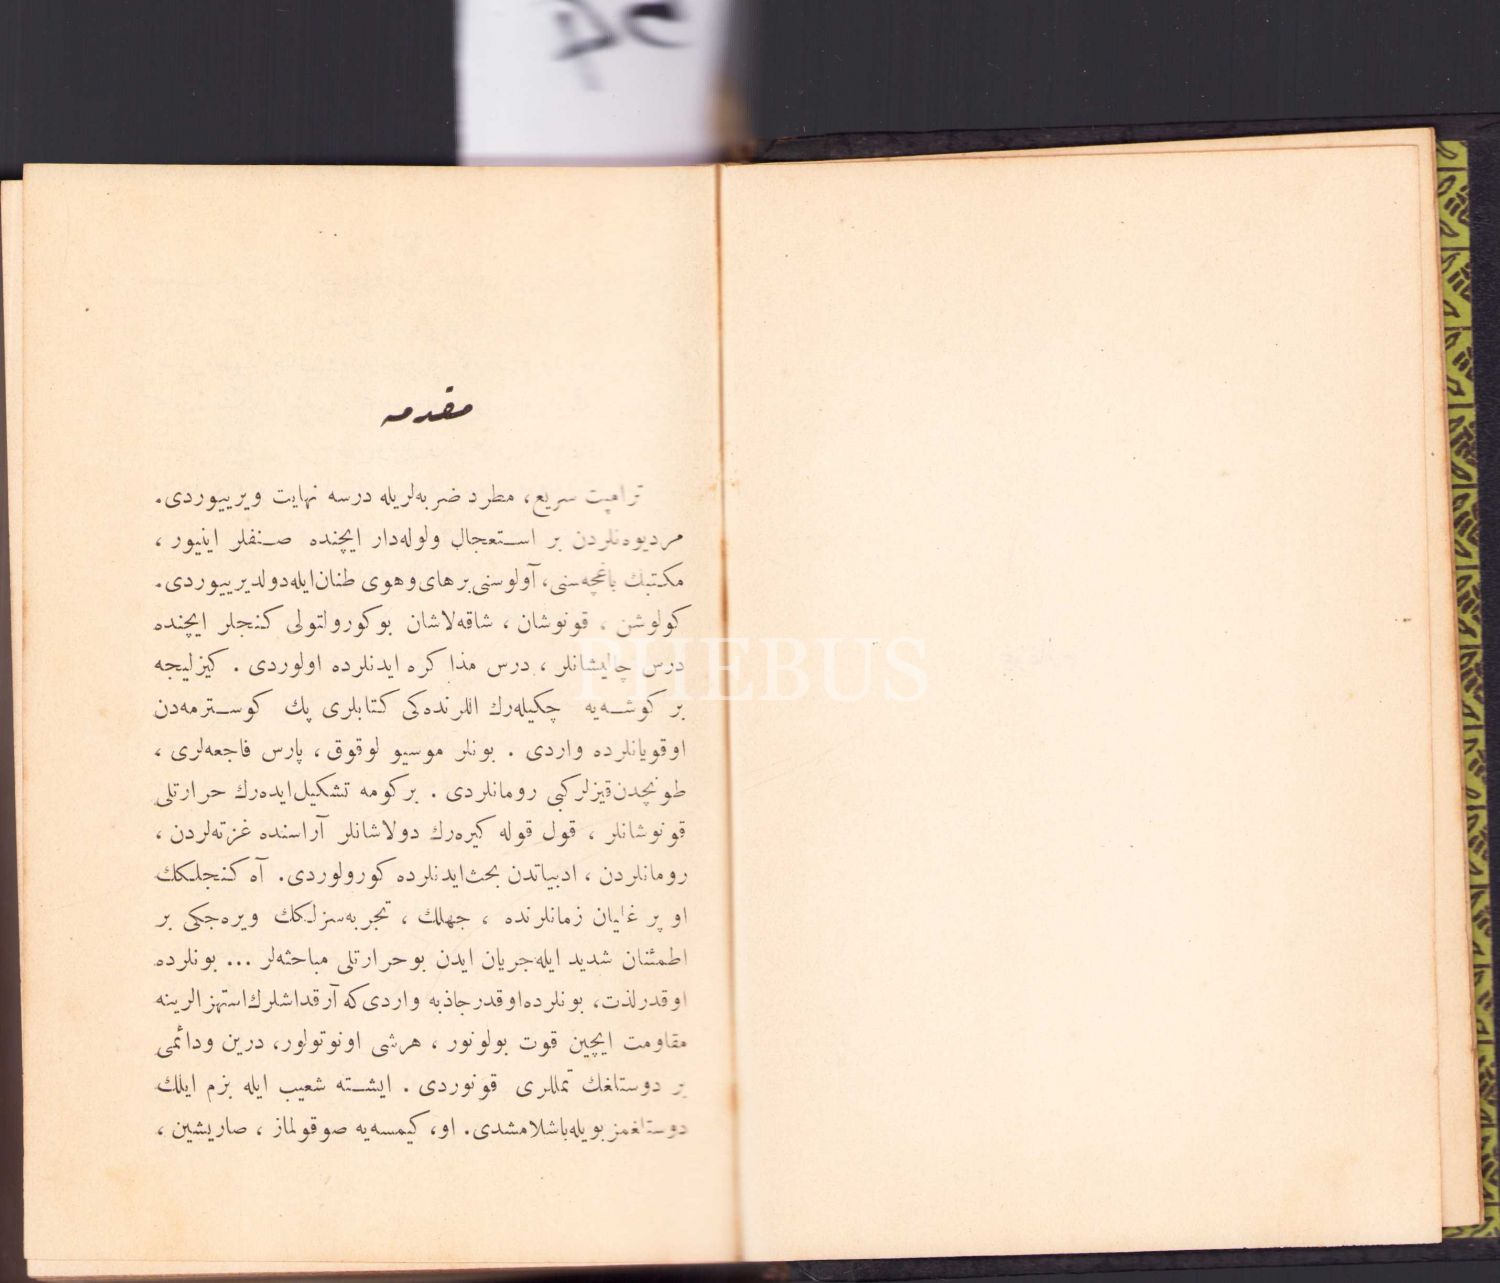 مقدمه
ترامپت سريع، مطرد ضربه‌لريله درسه نهايت ويرييوردى.
مرديوه‌نلردن بر استعجال ولوله‌دار ايچنده صنفلر اينيور ،
مكتبك باغچه‌سنى، آولوسنى برهاى‌وهوى طنان‌ايله‌دولديرييوردى.
كولوشن ، قونوشان ، شاقه‌لاشان بوكورولتولى كنجلر ايچنده
درس چاليشانلر ، درس مذاكره ايدنلرده اولوردى . كيزليجه
بر كوشه‌يه چكيله‌رك اللرنده‌كى كتابلرى پك كوسترمه‌دن
اوقويانلرده واردى . بونلر موسيو لوقوق ، پارس فاجعه‌لرى ،
طونچدن‌قيزلركبى رومانلردى . بركومه تشكيل‌ايده‌رك حرارتلى
قونوشانلر ، قول قوله كيره‌رك دولاشانلر آراسنده غزته‌لردن ،
رومانلردن ، ادبياتدن بحث‌ايدنلرده كورولوردى. آه كنجلكك
او پر غليان زمانلرنده ، جهلك ، تجربه‌سزلكك ويره‌جكى بر
اطمئنان شديد ايله‌جريان ايدن بوحرارتلى مباحثه‌لر ... بونلرده
اوقدرلذت، بونلرده‌اوقدرجاذبه واردى‌كه آرقداشلرك‌استهزالرينه
مقاومت ايچين قوت بولونور ، هرشى اونوتولور، درين ودائمى
بر دوستلغك تمللرى قونوردى . ايشته شعيب ايله بزم ايلك
دوستلغمز بويله‌باشلامشدى. او، كيمسه‌يه صوقولماز ، صاريشين ،
PHEBUS